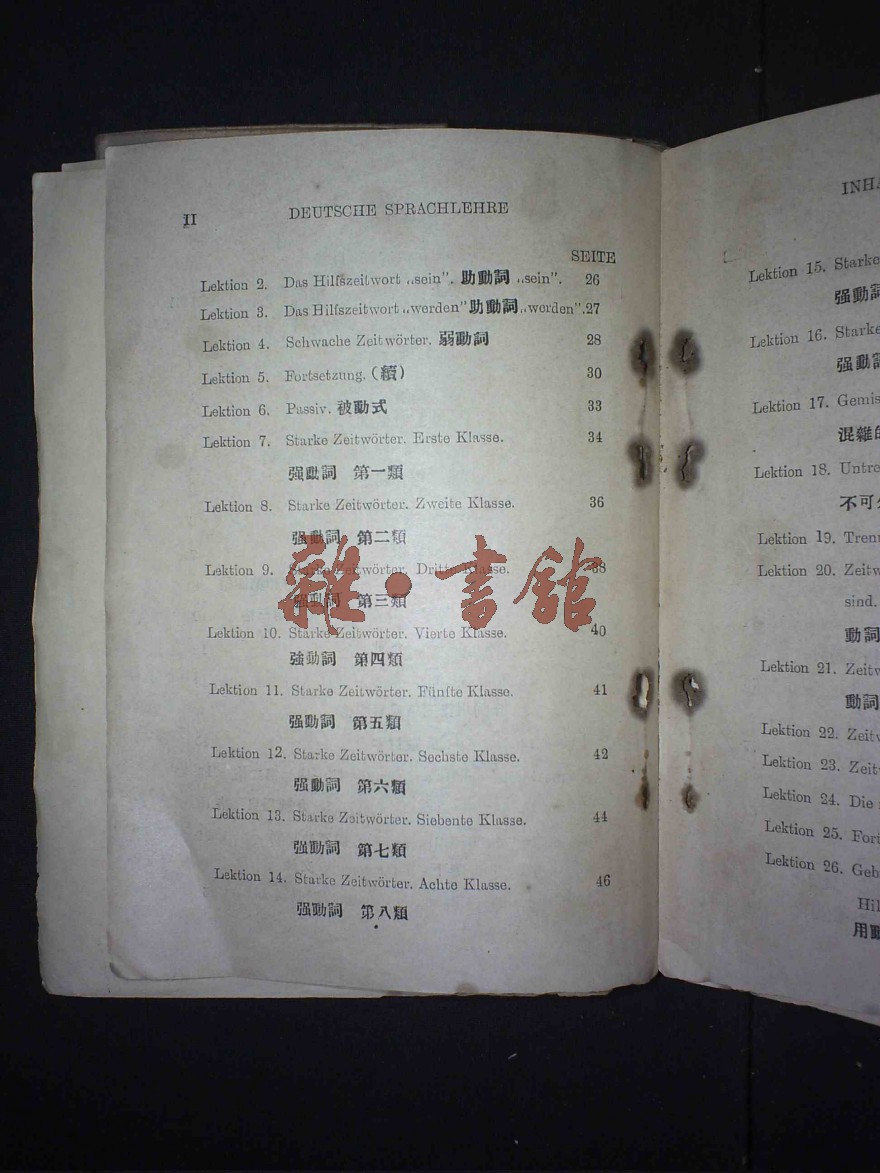 II DEUTSCHE SPRACHLEHRE
SEITE
Lektion 2. Das Hilfszeitwort „sein“. 助動詞 „sein“. 26
Lektion 3. Das Hilfszeitwort „werden“ 助動詞 „werden“. 27
Lektion 4. Schwache Zeitwörter. 弱動詞 28
Lektion 5. Fortsetzung. (續) 30
Lektion 6. Passiv. 被動式 33
Lektion 7. Starke Zeitwörter. Erste Klasse. 34
强動詞 第一類
Lektion 8. Starke Zeitwörter. Zweite Klasse. 36
强動詞 第二類
Lektion 9. Starke Zeitwörter. Dritte Klasse. 38
强動詞 第三類
Lektion 10. Starke Zeitwörter. Vierte Klasse. 40
強動詞 第四類
Lektion 11. Starke Zeitwörter. Fünfte Klasse. 41
强動詞 第五類
Lektion 12. Starke Zeitwörter. Sechste Klasse. 42
强動詞 第六類
Lektion 13. Starke Zeitwörter. Siebente Klasse. 44
强動詞 第七類
Lektion 14. Starke Zeitwörter. Achte Klasse. 46
强動詞 第八類
雜·書館
INHA
Lektion 15. Starke
强動詞
Lektion 16. Starke
强動詞
Lektion 17. Gemis
混雜的
Lektion 18. Untre
不可分
Lektion 19. Trenn
Lektion 20. Zeitw
sind.
動詞
Lektion 21. Zeitw
動詞
Lektion 22. Zeitw
Lektion 23. Zeit
Lektion 24. Die
Lektion 25. Fort
Lektion 26. Geb
Hil
用動